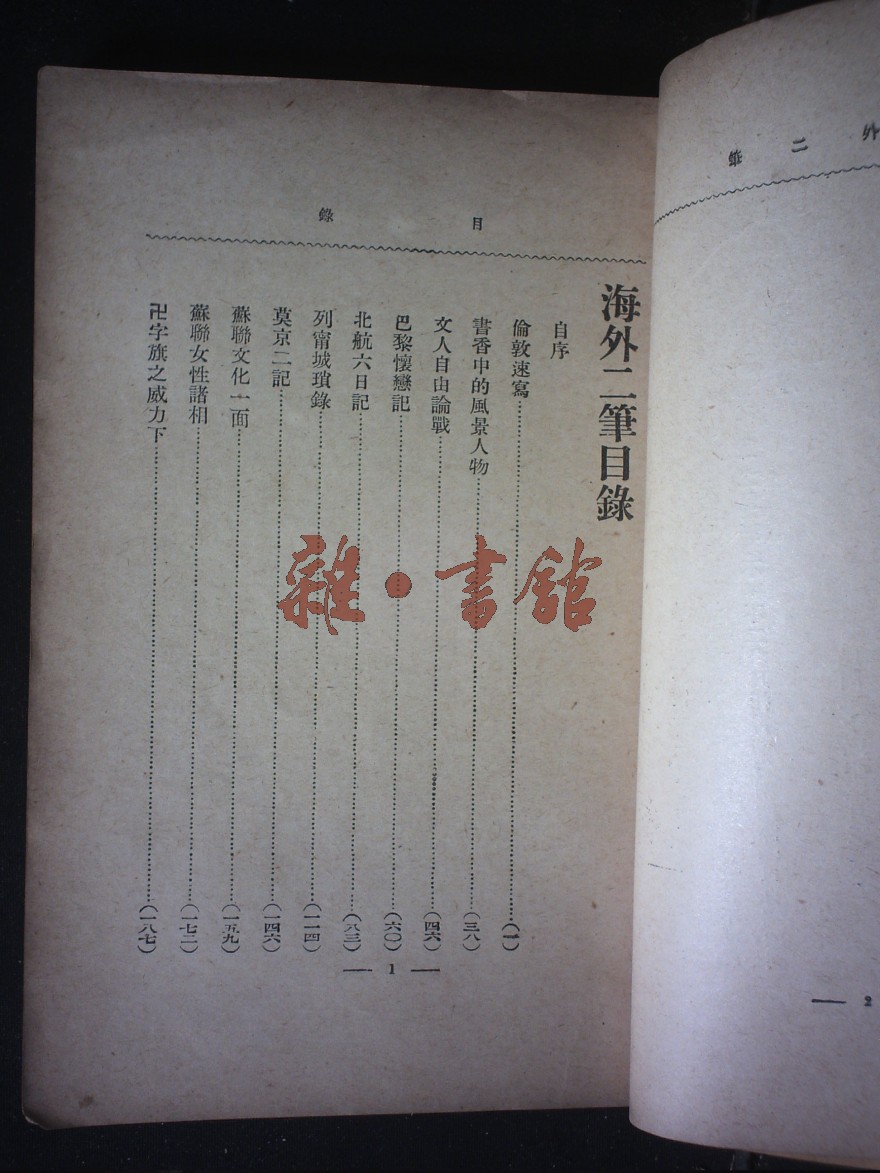 目錄
海外二筆目錄
自序
倫敦速寫……(一)
書香中的風景人物……(三八)
文人自由論戰……(四六)
巴黎懷戀記……(六〇)
北航六日記……(八三)
列甯城瑣錄……(一一四)
莫京二記……(一四六)
蘇聯文化一面……(一五九)
蘇聯女性諸相……(一七二)
卍字旗之威力下……(一八七)
— 1 —
雜·書館
外二筆
— 2